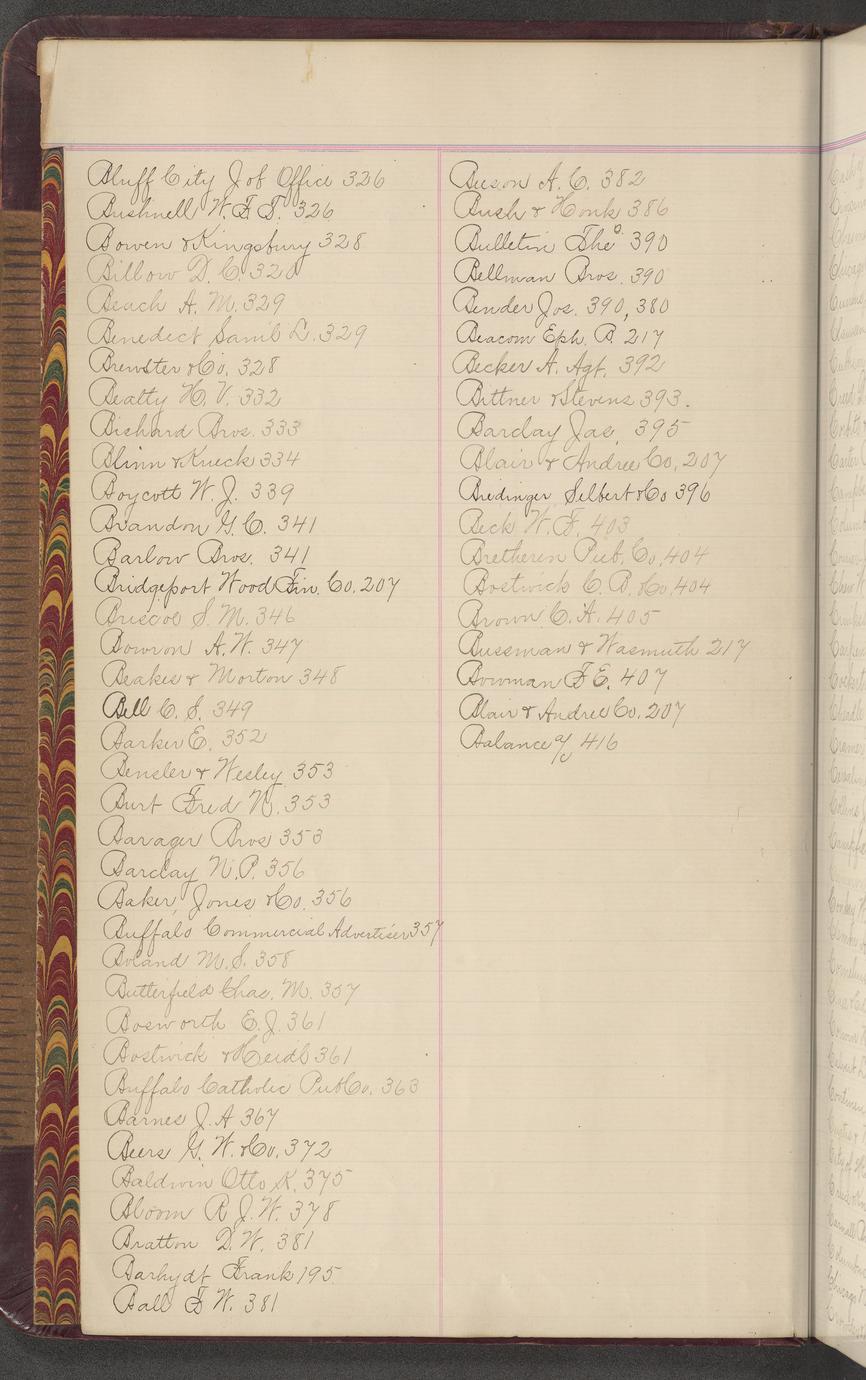 Bluff City Job Office 326
Bushnell W. F. S. 326
Bowen & Kingsbury 328
Billow D. C. 320
Beach A. M. 329
Benedict Sam'l L. 329
Brewster & Co. 328
Beatty H. V. 332
Bishard Bros. 333
Blinn & Kneck 334
Boycott W. J. 339
Brandon G. C. 341
Barlow Bros. 341
Bridgeport Wood Fin. Co. 207
Briscoe S. M. 346
Bowron A. W. 347
Beakes & Morton 348
Bell C. S. 349
Barker E. 352
Bensler & Wesley 353
Burt Fred N. 353
Barager Bros 353
Barclay N. P. 356
Baker, Jones & Co. 356
Buffalo Commercial Advertiser 357
Boland M. S. 358
Butterfield Chas. M. 357
Bosworth E. J. 361
Bostwick & Heidl 361
Buffalo Catholic Pub Co. 363
Barnes J. A 367
Beers G. W. & Co. 372
Baldwin Otto K. 375
Bloom R J. W. 378
Bratton D. W. 381
Barhydt Frank 195
Ball F W. 381
Beeson A. C. 382
Bush & Honk 386
Bulletin The 390
Bellman Bros. 390
Bender Jos. 390, 380
Beacom Eph. B. 217
Becker A. Agt. 392
Bittner & Stevens 393.
Barclay Jas. 395
Blair & Andree Co. 207
Bredinger Silbert & Co 396
Beck W. F. 403
Bretheren Pub. Co. 404
Bostwick C. B. & Co. 404
Brown C. A. 405
Bussman & Wasmuth 217
Bowman F E. 407
Blair & Andree Co. 207
Balance a/c 416